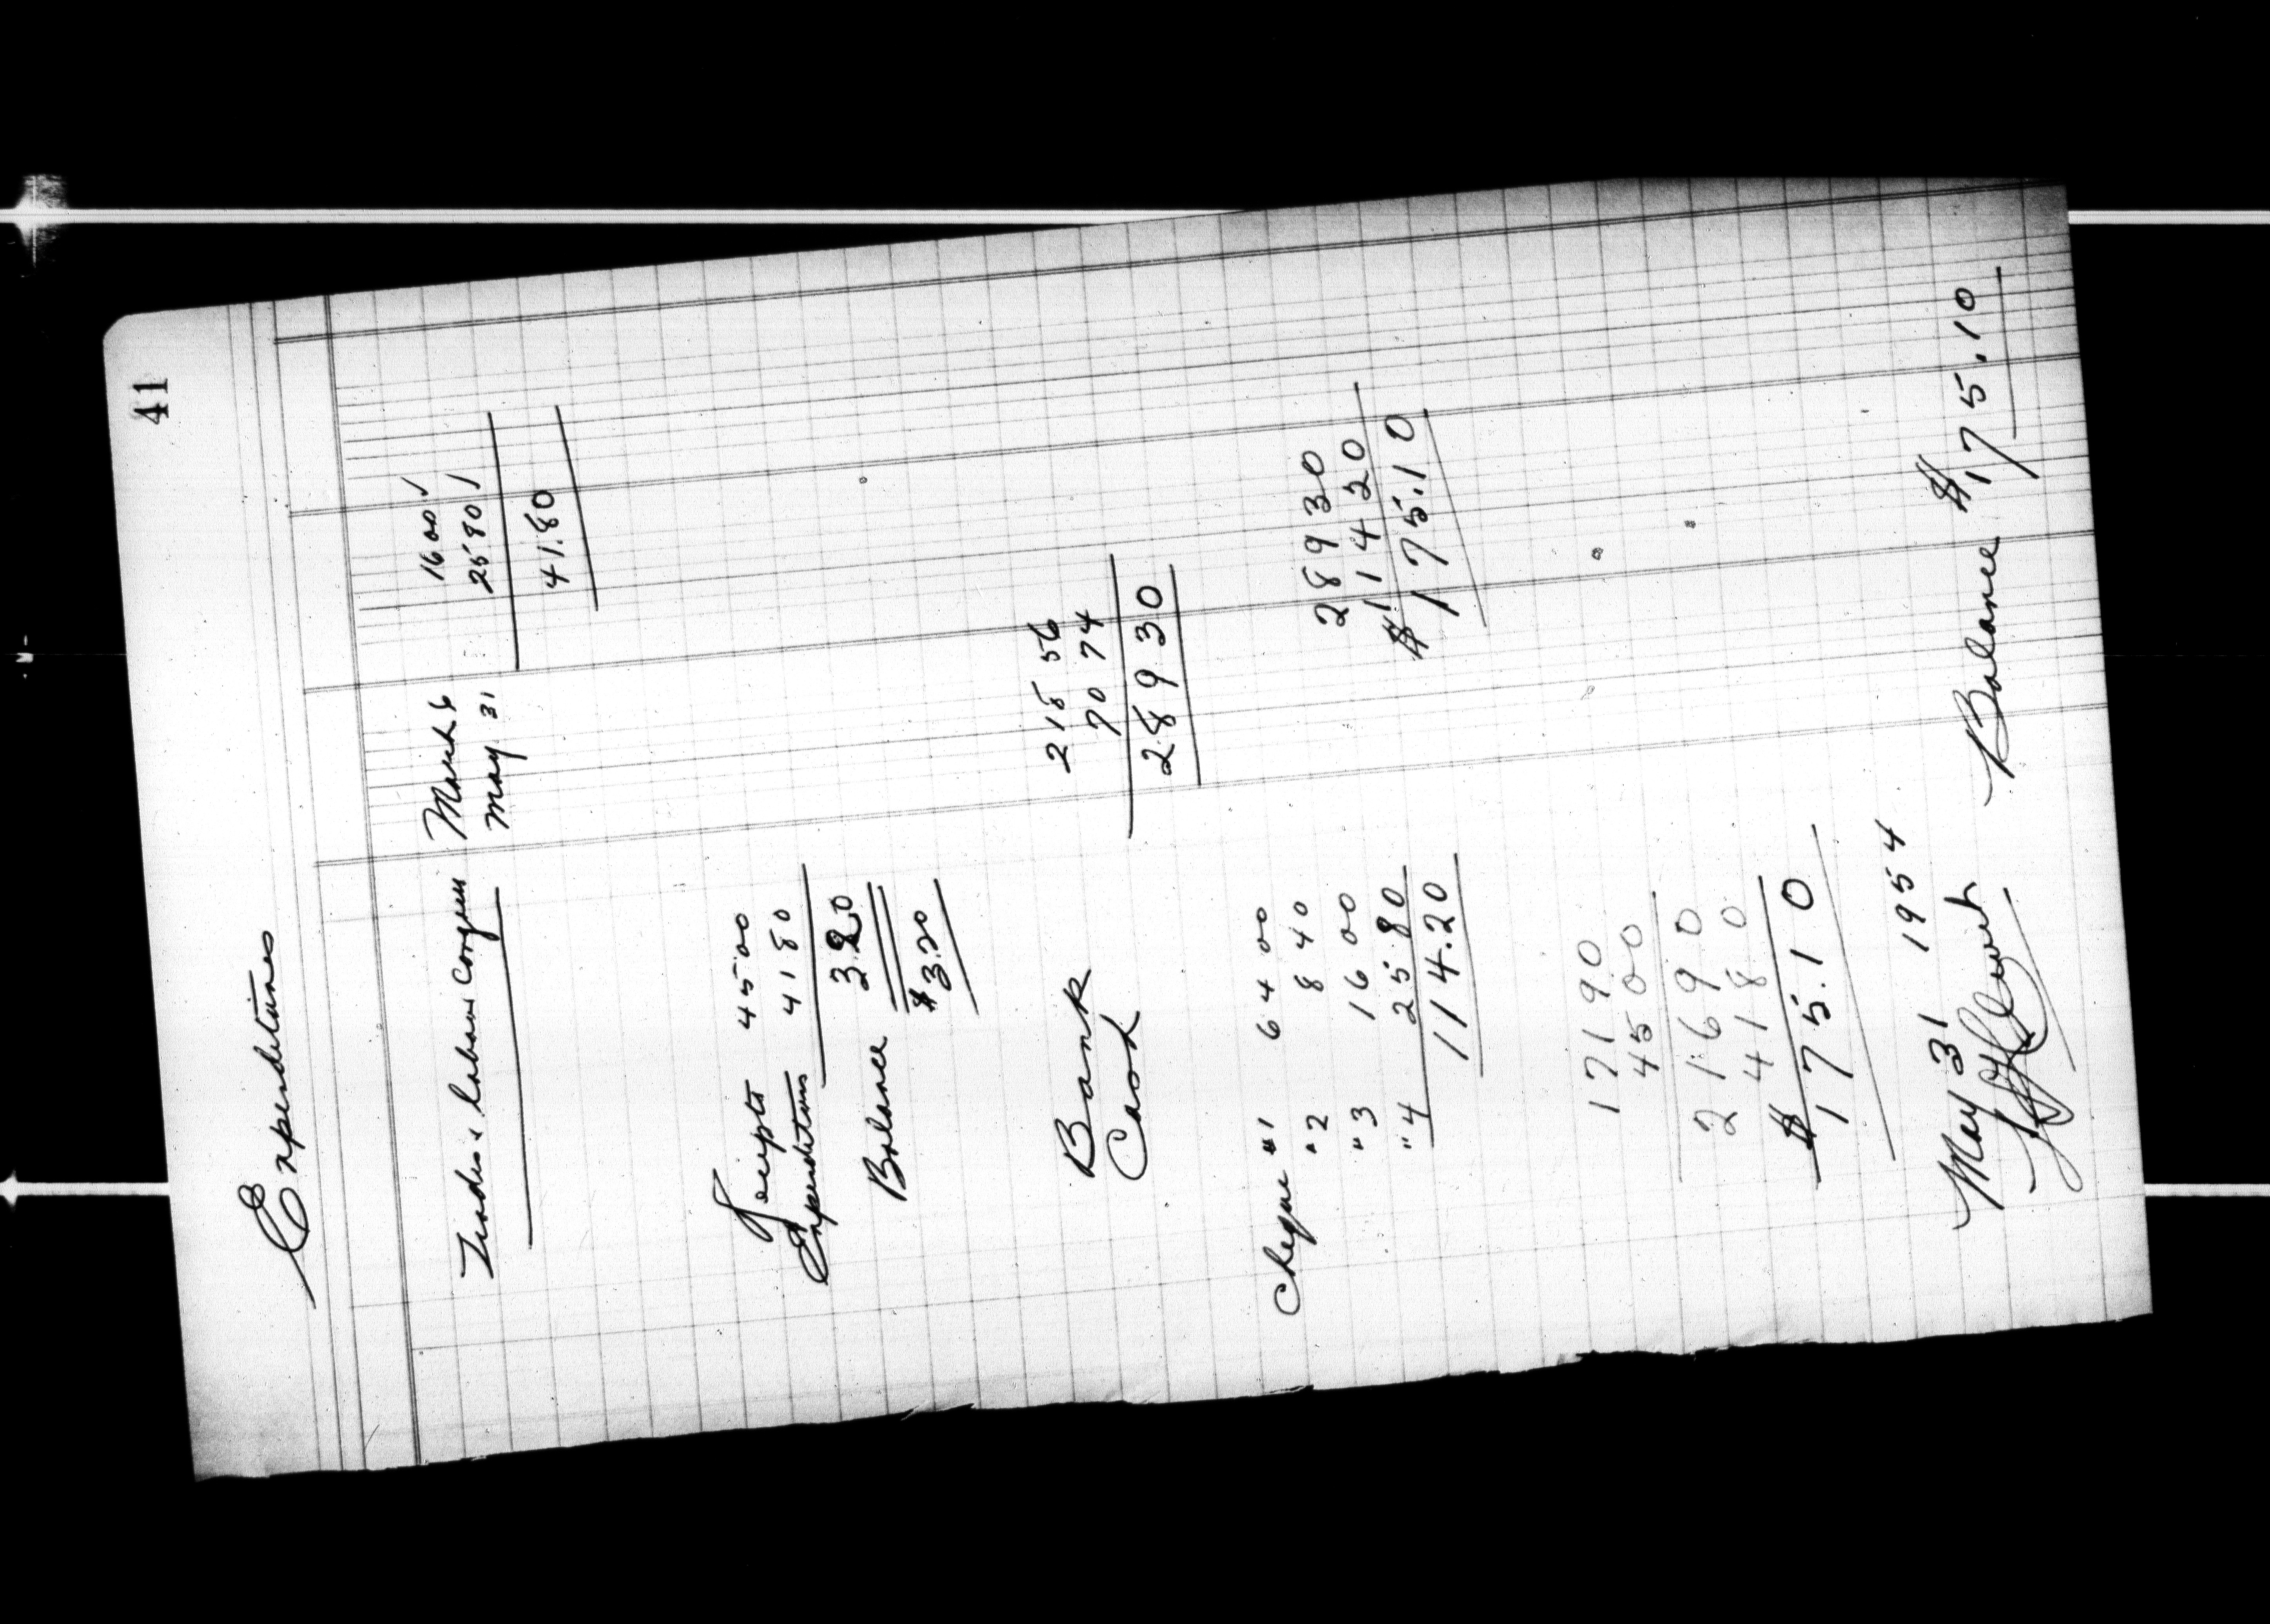 41
Expenditures
Trades & Labour Congress March 6 16 00 ✓
May 31 25 80 ✓
41.80
Receipts 45 00
Expenditures 41 80
Balance 3.20
$3.20
Bank 218 56
Cash 70 74
289 30
Cheque #1 64 00 289 30
"2 8 40 114 20
"3 16 00 $175.10
"4 25.80
114.20
171 90
45 00
216 90
41 80
$175.10
May 31 1954
Balance $175.10